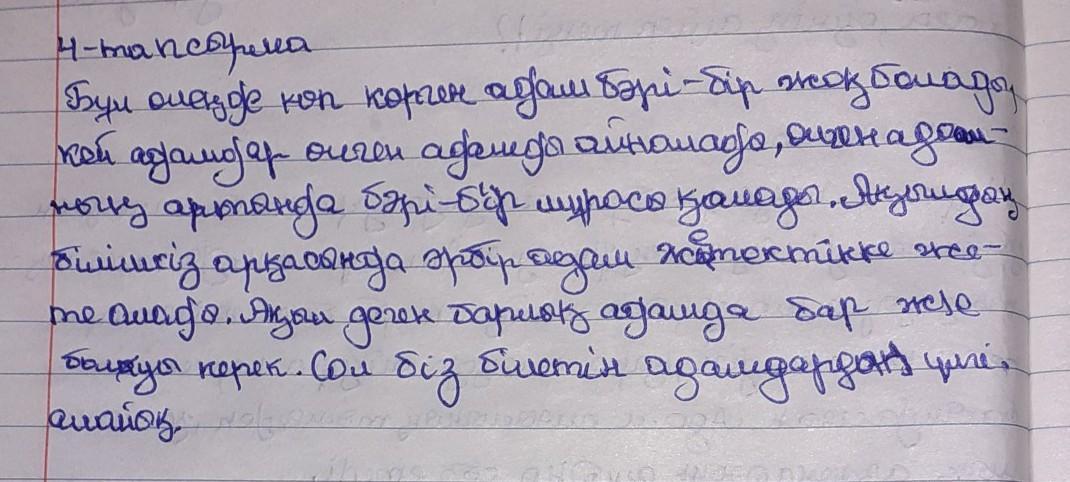 4-тапсырма
Бұл өлеңде көп көрген адам бәрі-бір жоқ болады,
көй адамдар өлген адамды ойномайды, өлген адам-
ның артында бәрі-бір мұрасы қалады. Ақылыдың
білімнің арқасында әрбір адам жетістікке же-
те алады. Ақыл деген барлық адамда бар және
болуы керек. Сол біз білетін адамдардан үлгі
алайық.